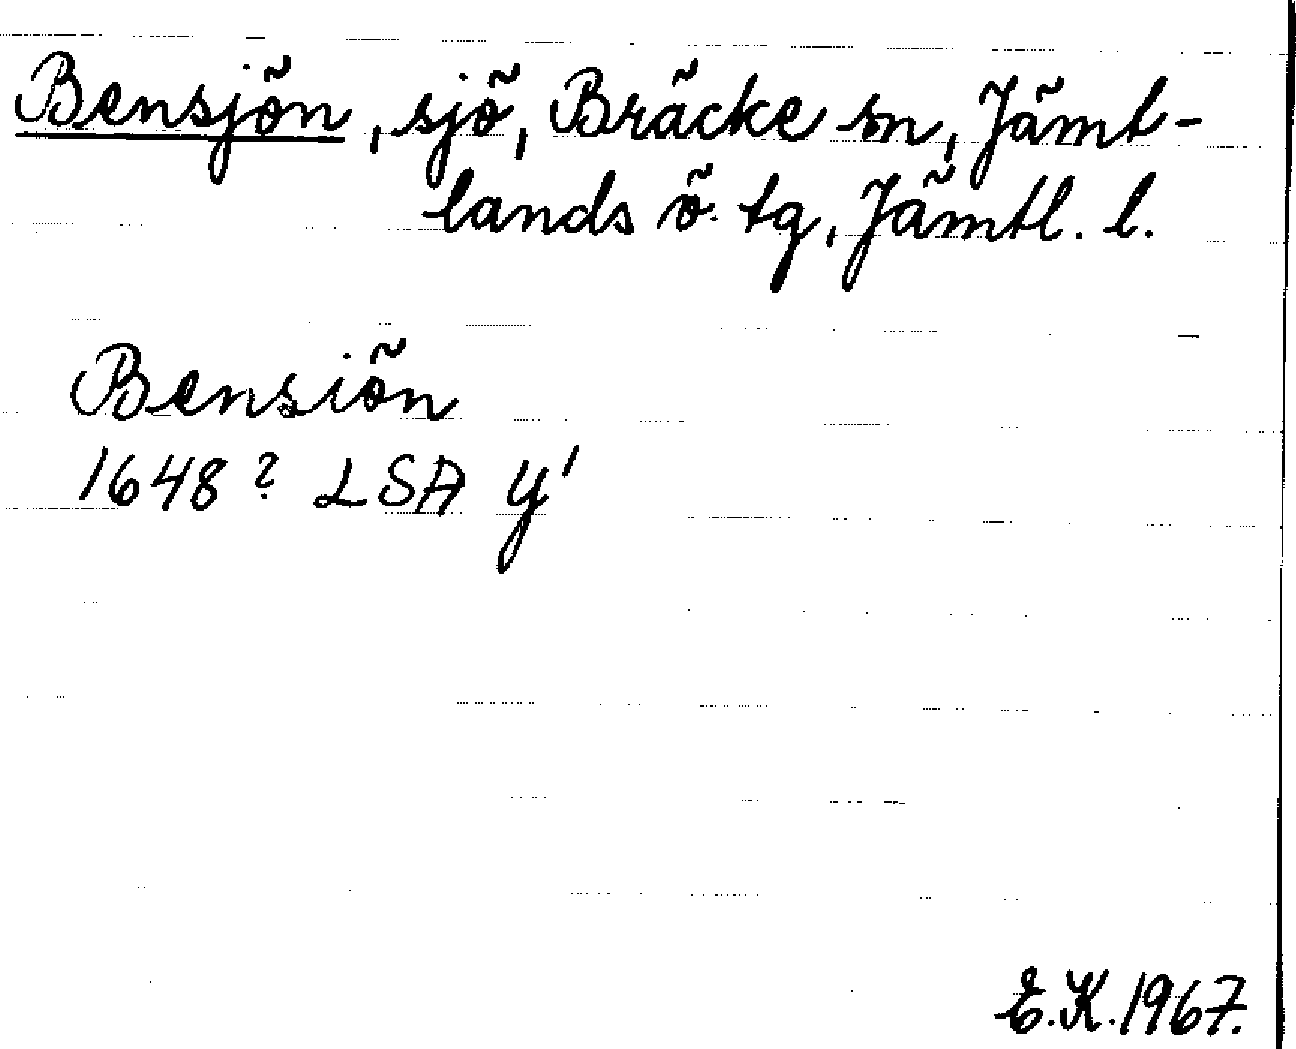 Bensjön, sjö, Bräcke sn, Jämt-
lands ö. tg, Jämtl. l.
Bensiön
1648? LSA Y'
E.K. 1967.